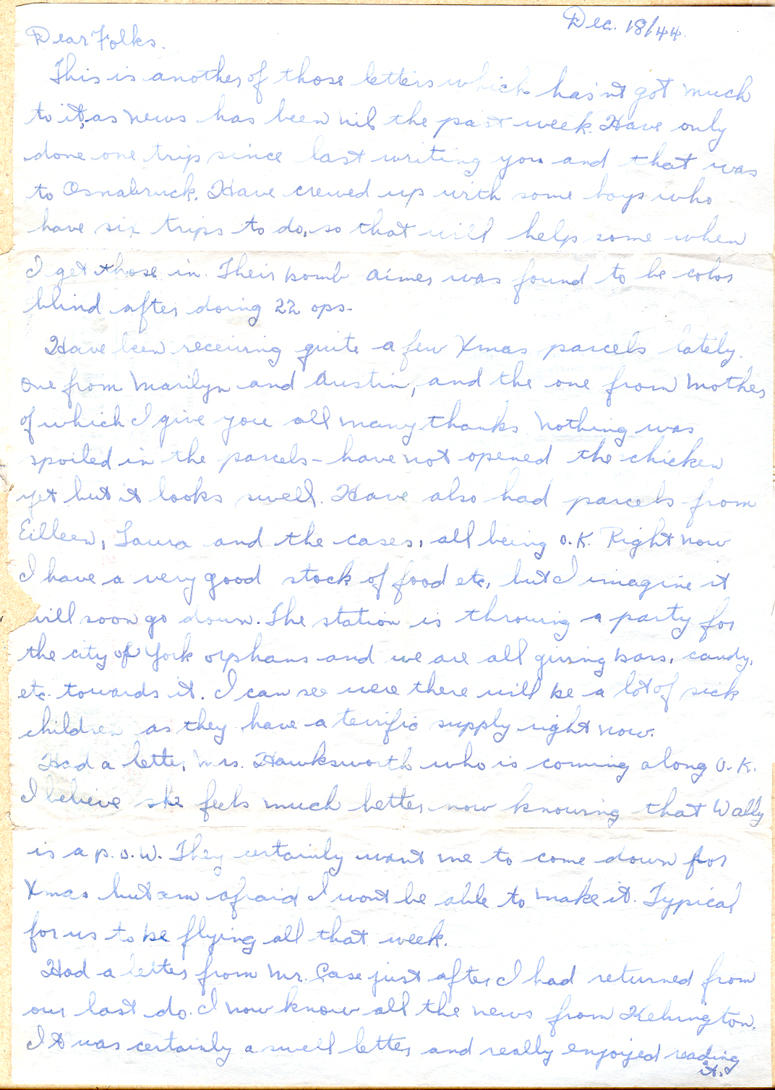 Dec. 18/44.
Dear Folks.
This is another of those letters which hasn't got much
to it, as news has been nil the past week. Have only
done one trip since last writing you and that was
to Osnabruck. Have crewed up with some boys who
have six trips to do, so that will help some when
I get those in. Their bomb aimer was found to be color
blind after doing 22 ops.
Have been receiving quite a few Xmas parcels lately.
One from Marilyn and Austin, and the one from Mother
of which I give you all many thanks. Nothing was
spoiled in the parcels - have not opened the chicken
yet but it looks swell. Have also had parcels from
Eilleen, Laura and the cases, all being O.K. Right now
I have a very good stock of food etc, but I imagine it
will soon go down. The station is throwing a party for
the city of York orphans and we are all giving bars, candy,
etc. towards it. I can see were there will be a lot of sick
children as they have a terrific supply right now.
Had a letter, Mrs. Hawksworth who is coming along O.K.
I believe she feels much better now knowing that Wally
is a P.O.W. They certainly want me to come down for
Xmas but am afraid I wont be able to make it. Typical
for us to be flying all that week.
Had a letter from Mr. Case just after I had returned from
our last do. I now know all the news from Kelvington.
It was certainly a swell letter and really enjoyed reading
it.